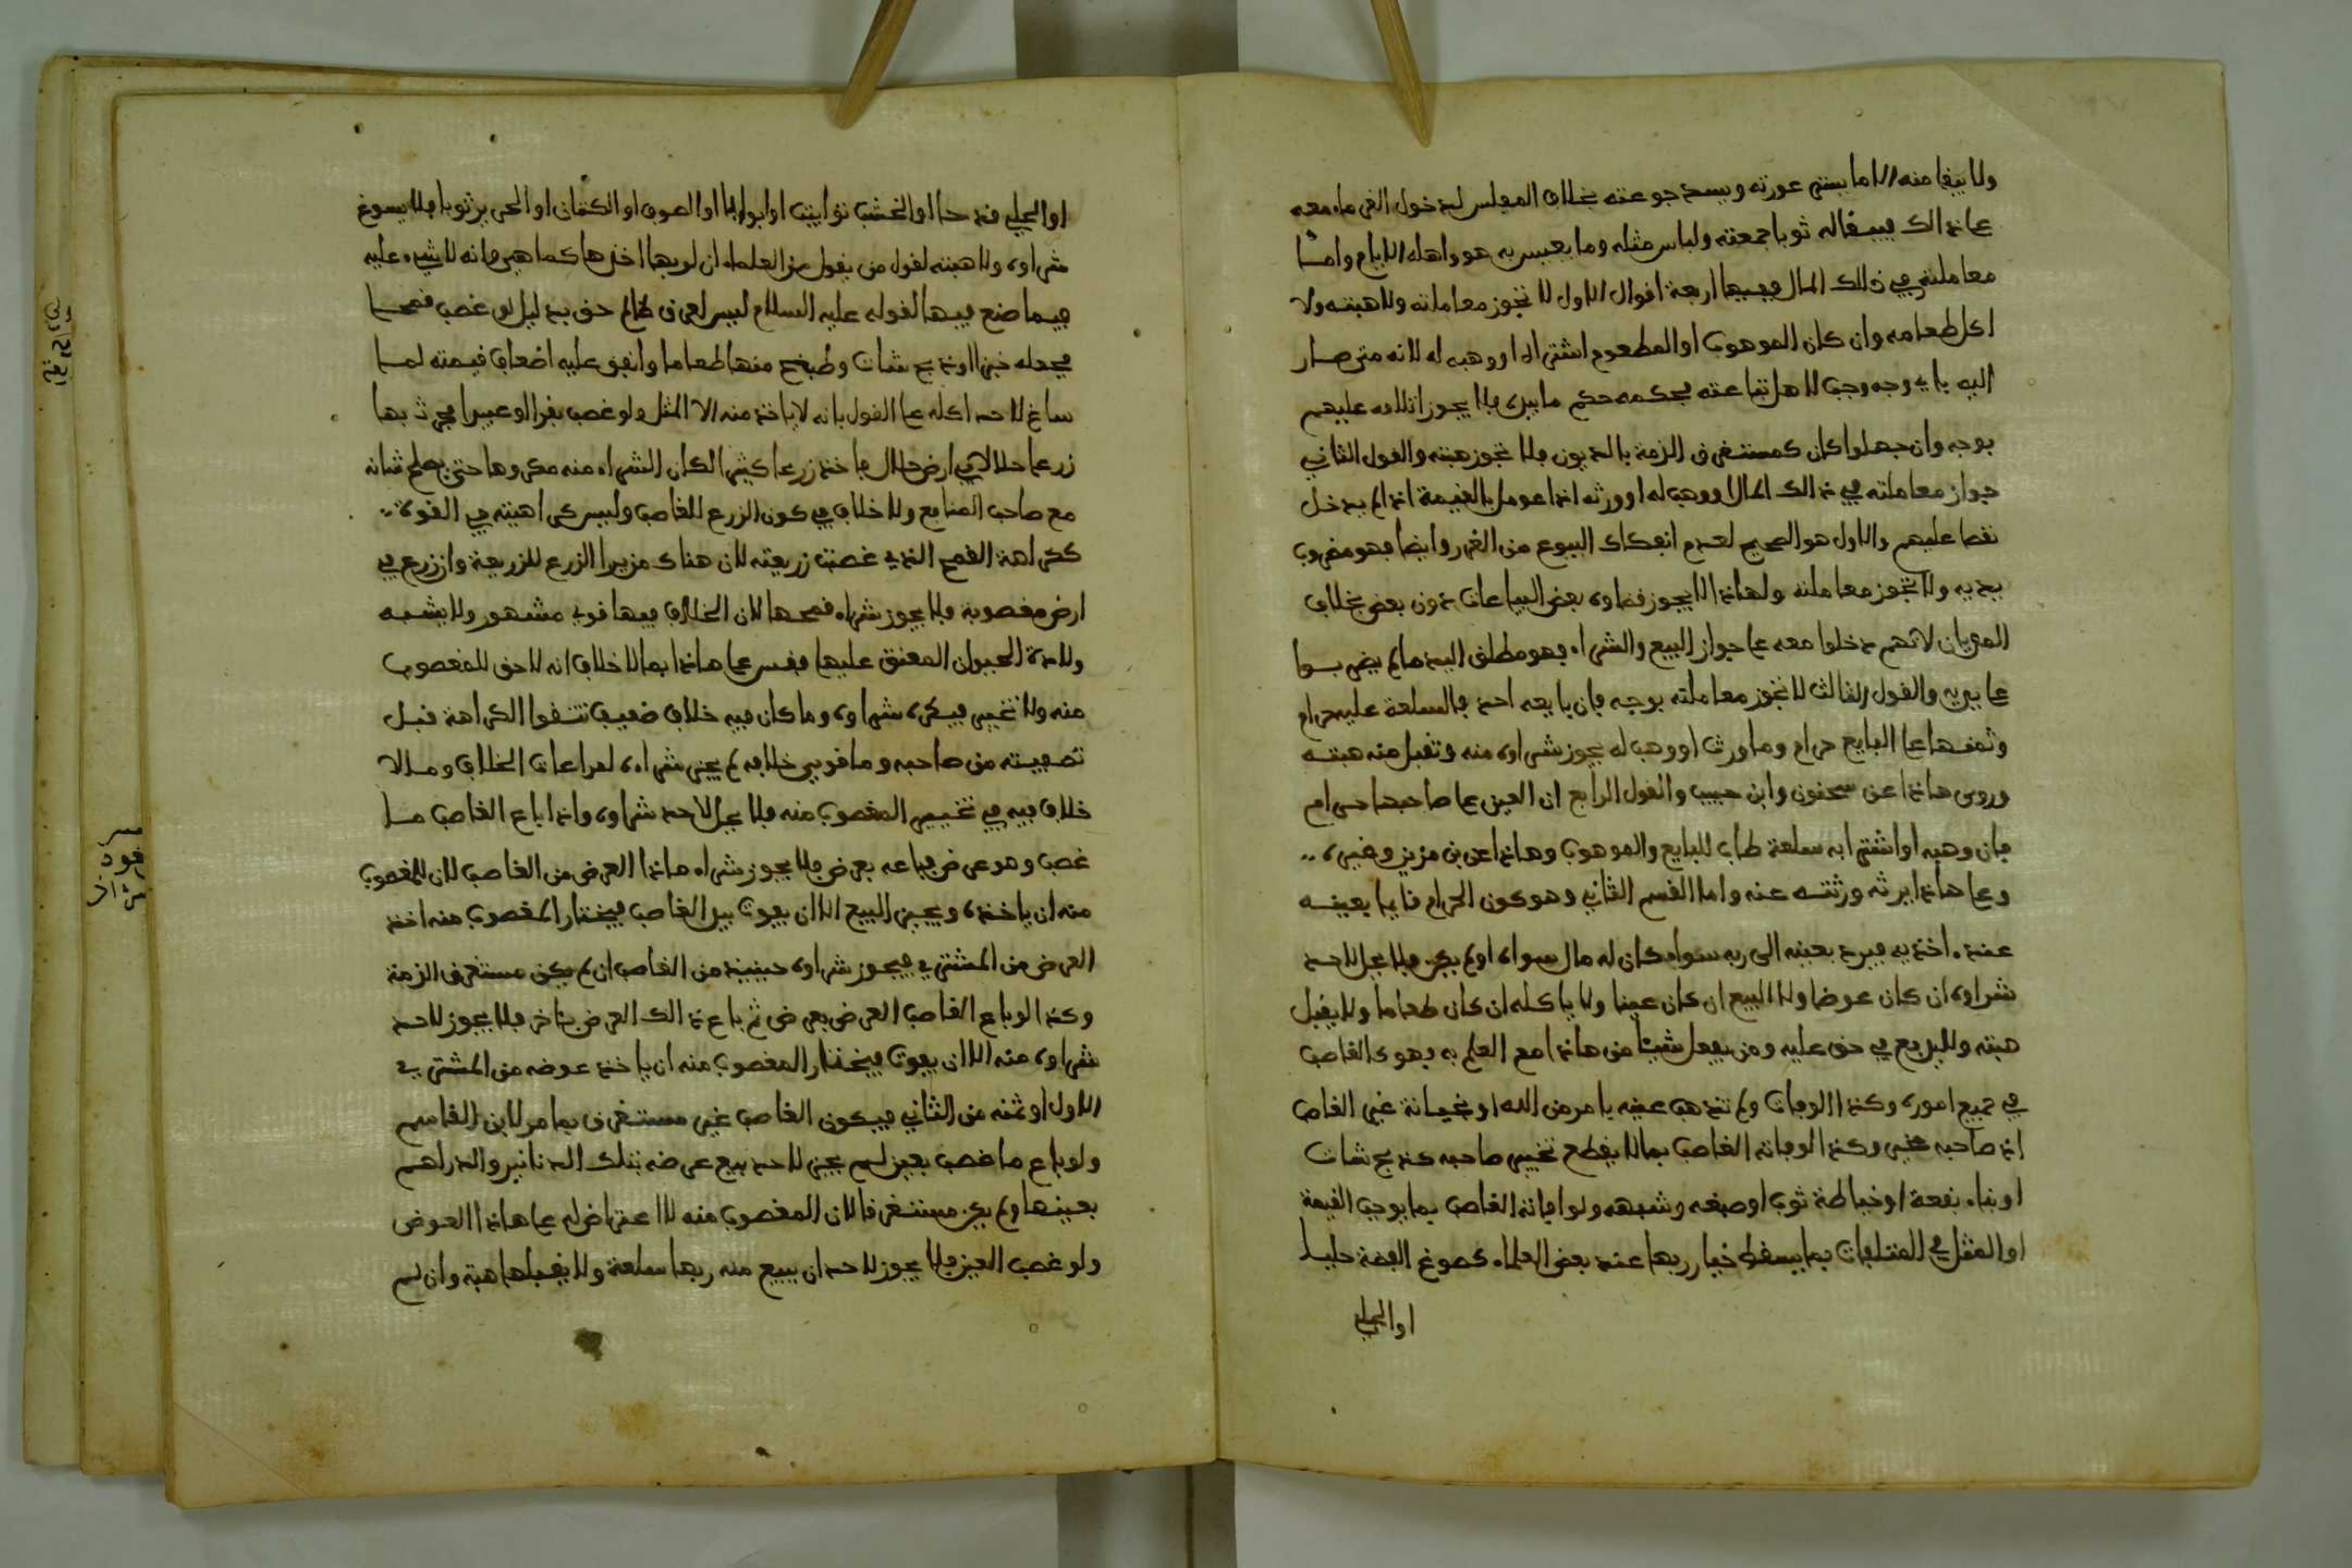 ولا يبقا منه الا ما يستر عورته ويسد جوعته بخلاف المفلس لدخول الغرماء معه
على ذالك فيبقا له ثوبا جمعته ولباس مثله وما يعيش به هو واهله الايام واما
معاملته في ذلك المال ففيها اربعة اقوال الاول لا تجوز معاملته ولا هبته ولا
اكل طعامه وان كان الموهوب او المطعوم اشترا او وهب له لانه متى صار
اليه باي وجه وجب لاهل تباعته فحكمه حكم ما بيده فلا يجوز اتلافه عليهم
بوجه وان جهلوا كان كمستغرق الذمة بالديون فلا تجوز هبته والقول الثاني
جواز معاملته في ذالك المال او وهب له او ورثه اذا عومل بالقيمة اذا لم يدخل
نقصا عليهم والاول هو الصحيح لعدم انفكاك البيوع من الغرر وايضا فهو مضروب
يديه ولا تجوز معاملته ولهاذا لا يجوز قضاوه بعض البياعات دون بعض بخلاف
المديان لانهم دخلوا معه على جواز البيع والشراء فهو مطلق اليد مالم يضربوا
على يديه والقول الثالث لا تجوز معاملته بوجه فان بايعه احد فالسلعة عليه حرام
وثمنها على البايع حرام وما ورث او وهب له يجوز شراوه منه وتقبل منه هبته
وروي هاذا عن سحنون وابن حبيب والقول الرابع ان العين على صاحبها حرام
فان وهبه او اشترا به سلعة طاب للبايع والموهوب وهاذا عن بن مزين وغيره
وعلى هاذا يرثه ورثته عنه واما القسم الثاني وهو كون الحرام قايما بعينه
عند اخذيه فيرد بعينه الى ربه سواء كان له مال سواه او لم يكن فلا يحل لاحد
شراوه ان كان عرضا ولا البيع ان كان عينا ولا ياكله ان كان طعاما ولا يقبل
هبته وللبريع في حق عليه ومن يفعل شيئا من هاذا مع العلم به فهو كالغاصب
في جميع اموره وكذا لو فات ولم تذهب عينه بامر من الله او بخيانة غير الغاصب
اذ صاحبه مخير وكذا لو فاته الغاصب بما لا يقطع تخيير صاحبه كذبح شات
او بناء بقعة او خياطة ثوب او صبغه وشبهه ولو افاته الغاصب بما يوجب القيمة
او المثل في المتلفات بما يسقط خيار ربها عند بعض العلماء كصوغ الفضة حليا
او الحلي
او الحلي قدحا او الخشب توابيت او ابوابا او الصوف او الكتان او الحرير ثوبا فلا يسوغ
شراوه ولا هبته لقول من يقول من العلماء ان لربها اخذها كما هي وانه لا شيء عليه
فيما صنع فيها لقوله عليه السلام ليس لعرق ظالم حق بدليل لو غصب قمحا
فجعله خبزا او ذبح شات وطبخ منها طعاما وانفق عليه اضعاف قيمته لما
ساغ لاحد اكله على القول بانه لا ياخذ منه الا المثل ولو غصب بقرا او عبيدا فحرث بها
زرعا حلالا في ارض حلال فاخذ زرعا كثيرا لكان الشراء منه مكروها حتى يصلح شانه
مع صاحب المنافع ولا خلاف في كون الزرع للغاصب وليس كراهيته في القوة
ككراهة القمح الذي غصبت زريعته لان هناك مزيد الزرع للزريعة وان زرع في
ارض مغصوبة فلا يجوز شراء قمحها لان الخلاف فيها قوي مشهور ولا يشبه
ولادة الحيوان المعتق عليها فقس على هاذا بما لا خلاف انه لا حق للمغصوب
منه ولا تخيير فيكره شراوه وما كان فيه خلاف ضعيف تتقوا الكراهة قبل
تصفيته من صاحبه وما قوي خلافه لم يجز شراءه لمراعات الخلاف وما لا
خلاف فيه في تخيير المغصوب منه فلا يحل لاحد شراوه واذا باع الغاصب ما
غصب وهو عرض فباعه بعرض فلا يجوز شراء هاذا العرض من الغاصب لان للمغصوب
منه ان ياخذه ويجيز البيع الا ان يفوت بيد الغاصب فيختار المغصوب منه اخذ
العرض من المشتري فيجوز شراوه حينيذ من الغاصب ان لم يكن مستغرق الذمة
وكذا لو باع الغاصب العرض بعرض ثم باع ذالك العرض بئاخر فلا يجوز لاحد
شراوه منه الا ان يفوت فيختار المغصوب منه ان ياخذ عوضه من المشتري
الاول او ثمنه من الثاني فيكون الغاصب غير مستغرق بما مر لابن القاسم
ولو باع ما غصب بعين لم يجز لاحد بيع عرضه بتلك الدنانير والدراهم
بعينها ولم يكن مستغرقا لان المغصوب منه لا اعتراض له على هاذا العوض
ولو غصب العين فلا يجوز لاحد ان يبيع منه ربها سلعة ولا يقبلها هبة وان لم